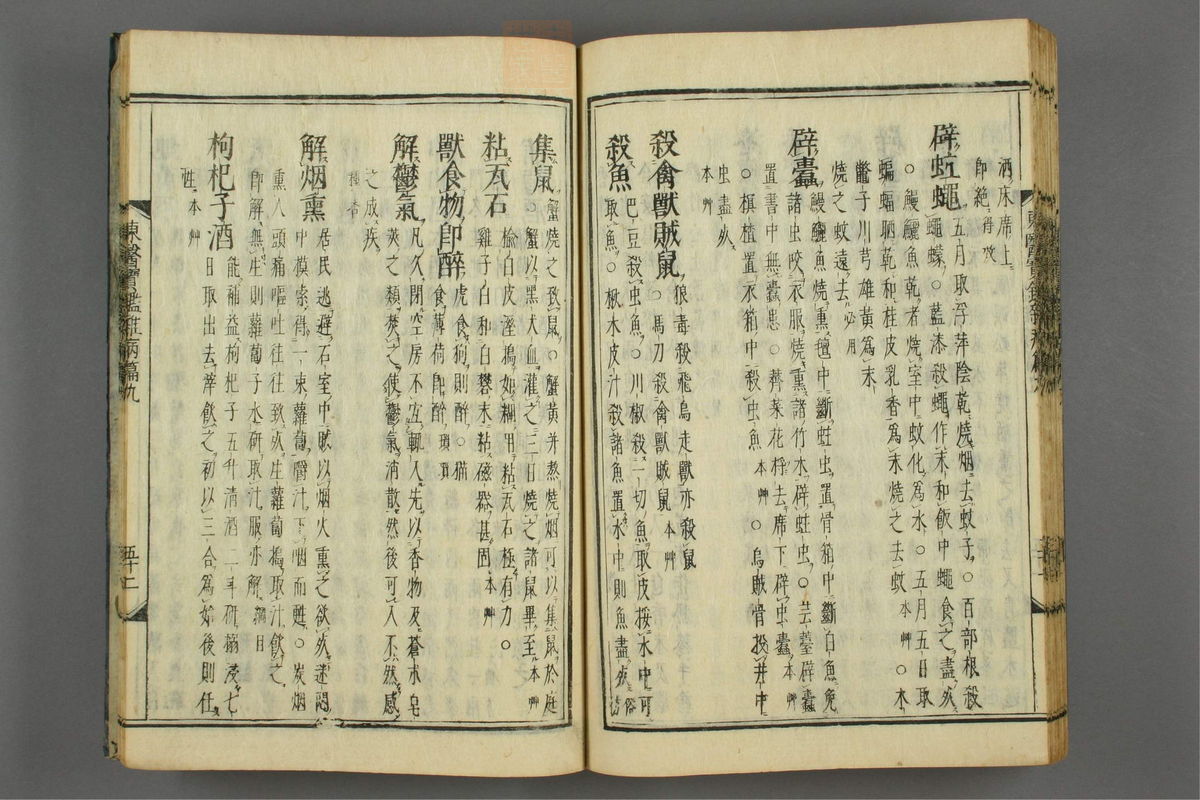 洒床席上
卽絕 得效
辟蚊蠅 五月取浮萍陰乾燒烟去蚊子○百部根殺
蠅蠓○藍漆殺蠅作末和飯中蠅食之盡死
○鰻鱺魚乾者燒室中蚊化爲水○五月五日取
蝙蝠晒乾和桂皮乳香爲末燒之去蚊 本艸○木
鱉子川芎雄黃爲末
燒之蚊遠去 必用
辟蠹 鰻鱺魚燒熏氊中斷蛀虫置骨箱中斷白魚免
諸虫咬衣服燒熏諸竹木辟蛀虫○芸薹辟蠹
置書中無蠹患○薺菜花桴去席下辟虫蠹 本艸
○榠樝置衣箱中殺虫魚 本艸○烏賊骨投井中
虫盡死 本艸
殺禽獸賊鼠 狼毒殺飛鳥走獸亦殺鼠
○馬刀殺禽獸賊鼠 本艸
殺魚 巴豆殺虫魚○川椒殺一切魚取皮挼水中可
取魚○楸木皮汁殺諸魚置水中則魚盡死 俗方
集鼠 蟹燒之致鼠○蟹黃幷螯燒烟可以集鼠於庭
○蟹以黑犬血灌之三日燒之諸鼠畢至 本艸
粘瓦石 榆白皮溼搗如糊用粘瓦石極有力○
雞子白和白礬末粘磁器甚固 本艸
獸食物卽醉 虎食狗則醉○猫
食薄荷卽醉 瑣碎
解鬱氣 凡久閉空房不宜輒入先以香物及蒼朮皂
莢之類焚之使鬱氣消散然後可入不然感
之成疾
種杏
解烟熏 居民逃避石室中賊以烟火熏之欲死迷悶
中摸索得一束蘿蔔嚼汁下咽而甦○炭烟
熏人頭痛嘔吐往往致死生蘿蔔搗取汁飮之
卽解無生則蘿蔔子水硏取汁服亦解 綱目
枸杞子酒 能補益枸杞子五升淸酒二斗硏搦浸七
日取出去滓飮之初以三合爲始後則任
性 本艸
東醫寶鑑雜病篇九
五十二